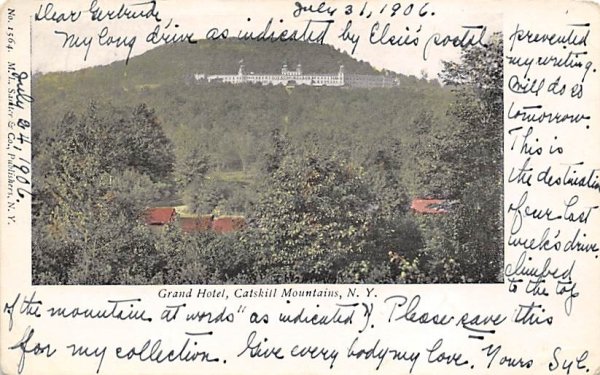 Dear Gertrude July 31, 1906.
My long drive as indicated by Elsie's postel
prevented
my writing.
Will do so
tomorrow.
This is
the destination
of our last
week's drive.
climbed
to the top
of the mountain at words "as indicated". Please save this
for my collection. Give every body my love. Yours Syl.
July 24, 1906.
No. 1564. M. L. Sauter & Co., Publishers, N. Y.
Grand Hotel, Catskill Mountains, N. Y.